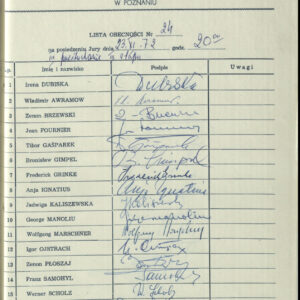 W POZNANIU
LISTA OBECNOŚCI Nr 24
na posiedzeniu Jury dnia 23.XI.72 godz. 20.00
Lp. Imię i nazwisko Podpis Uwagi
1 Irena DUBISKA Dubiska
2 Wladimir AWRAMOW
3 Zenon BRZEWSKI Z. Brzewski
4 Jean FOURNIER J. Fournier
5 Tibor GAŠPAREK T. Gašparek
6 Bronisław GIMPEL B. Gimpel
7 Frederick GRINKE Frederick Grinke
8 Anja IGNATIUS Anja Ignatius
9 Jadwiga KALISZEWSKA Kaliszewska
10 George MANOLIU George Manoliu
11 Wolfgang MARSCHNER Wolfgang Marschner
12 Igor OJSTRACH
13 Zenon PŁOSZAJ
14 Franz SAMOHYL Samohyl
15 Werner SCHOLZ W. Scholz